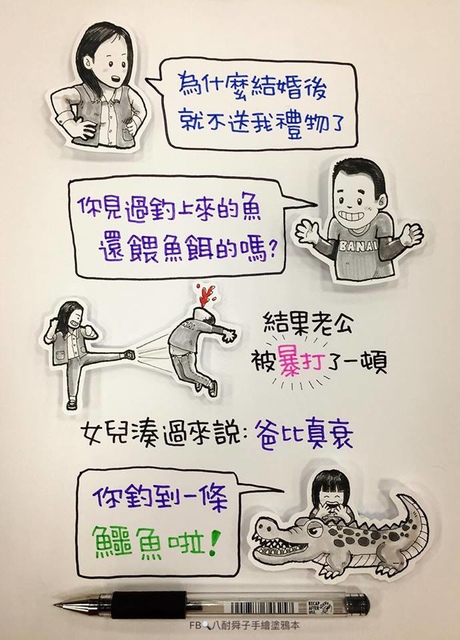 為什麼結婚後
就不送我禮物了
你見過釣上來的魚
還餵魚餌的嗎?
BANAI
結果老公
被暴打了一頓
女兒湊過來說:爸比真衰
你釣到一條
鱷魚啦!
FB🔍八耐舜子手繪塗鴉本